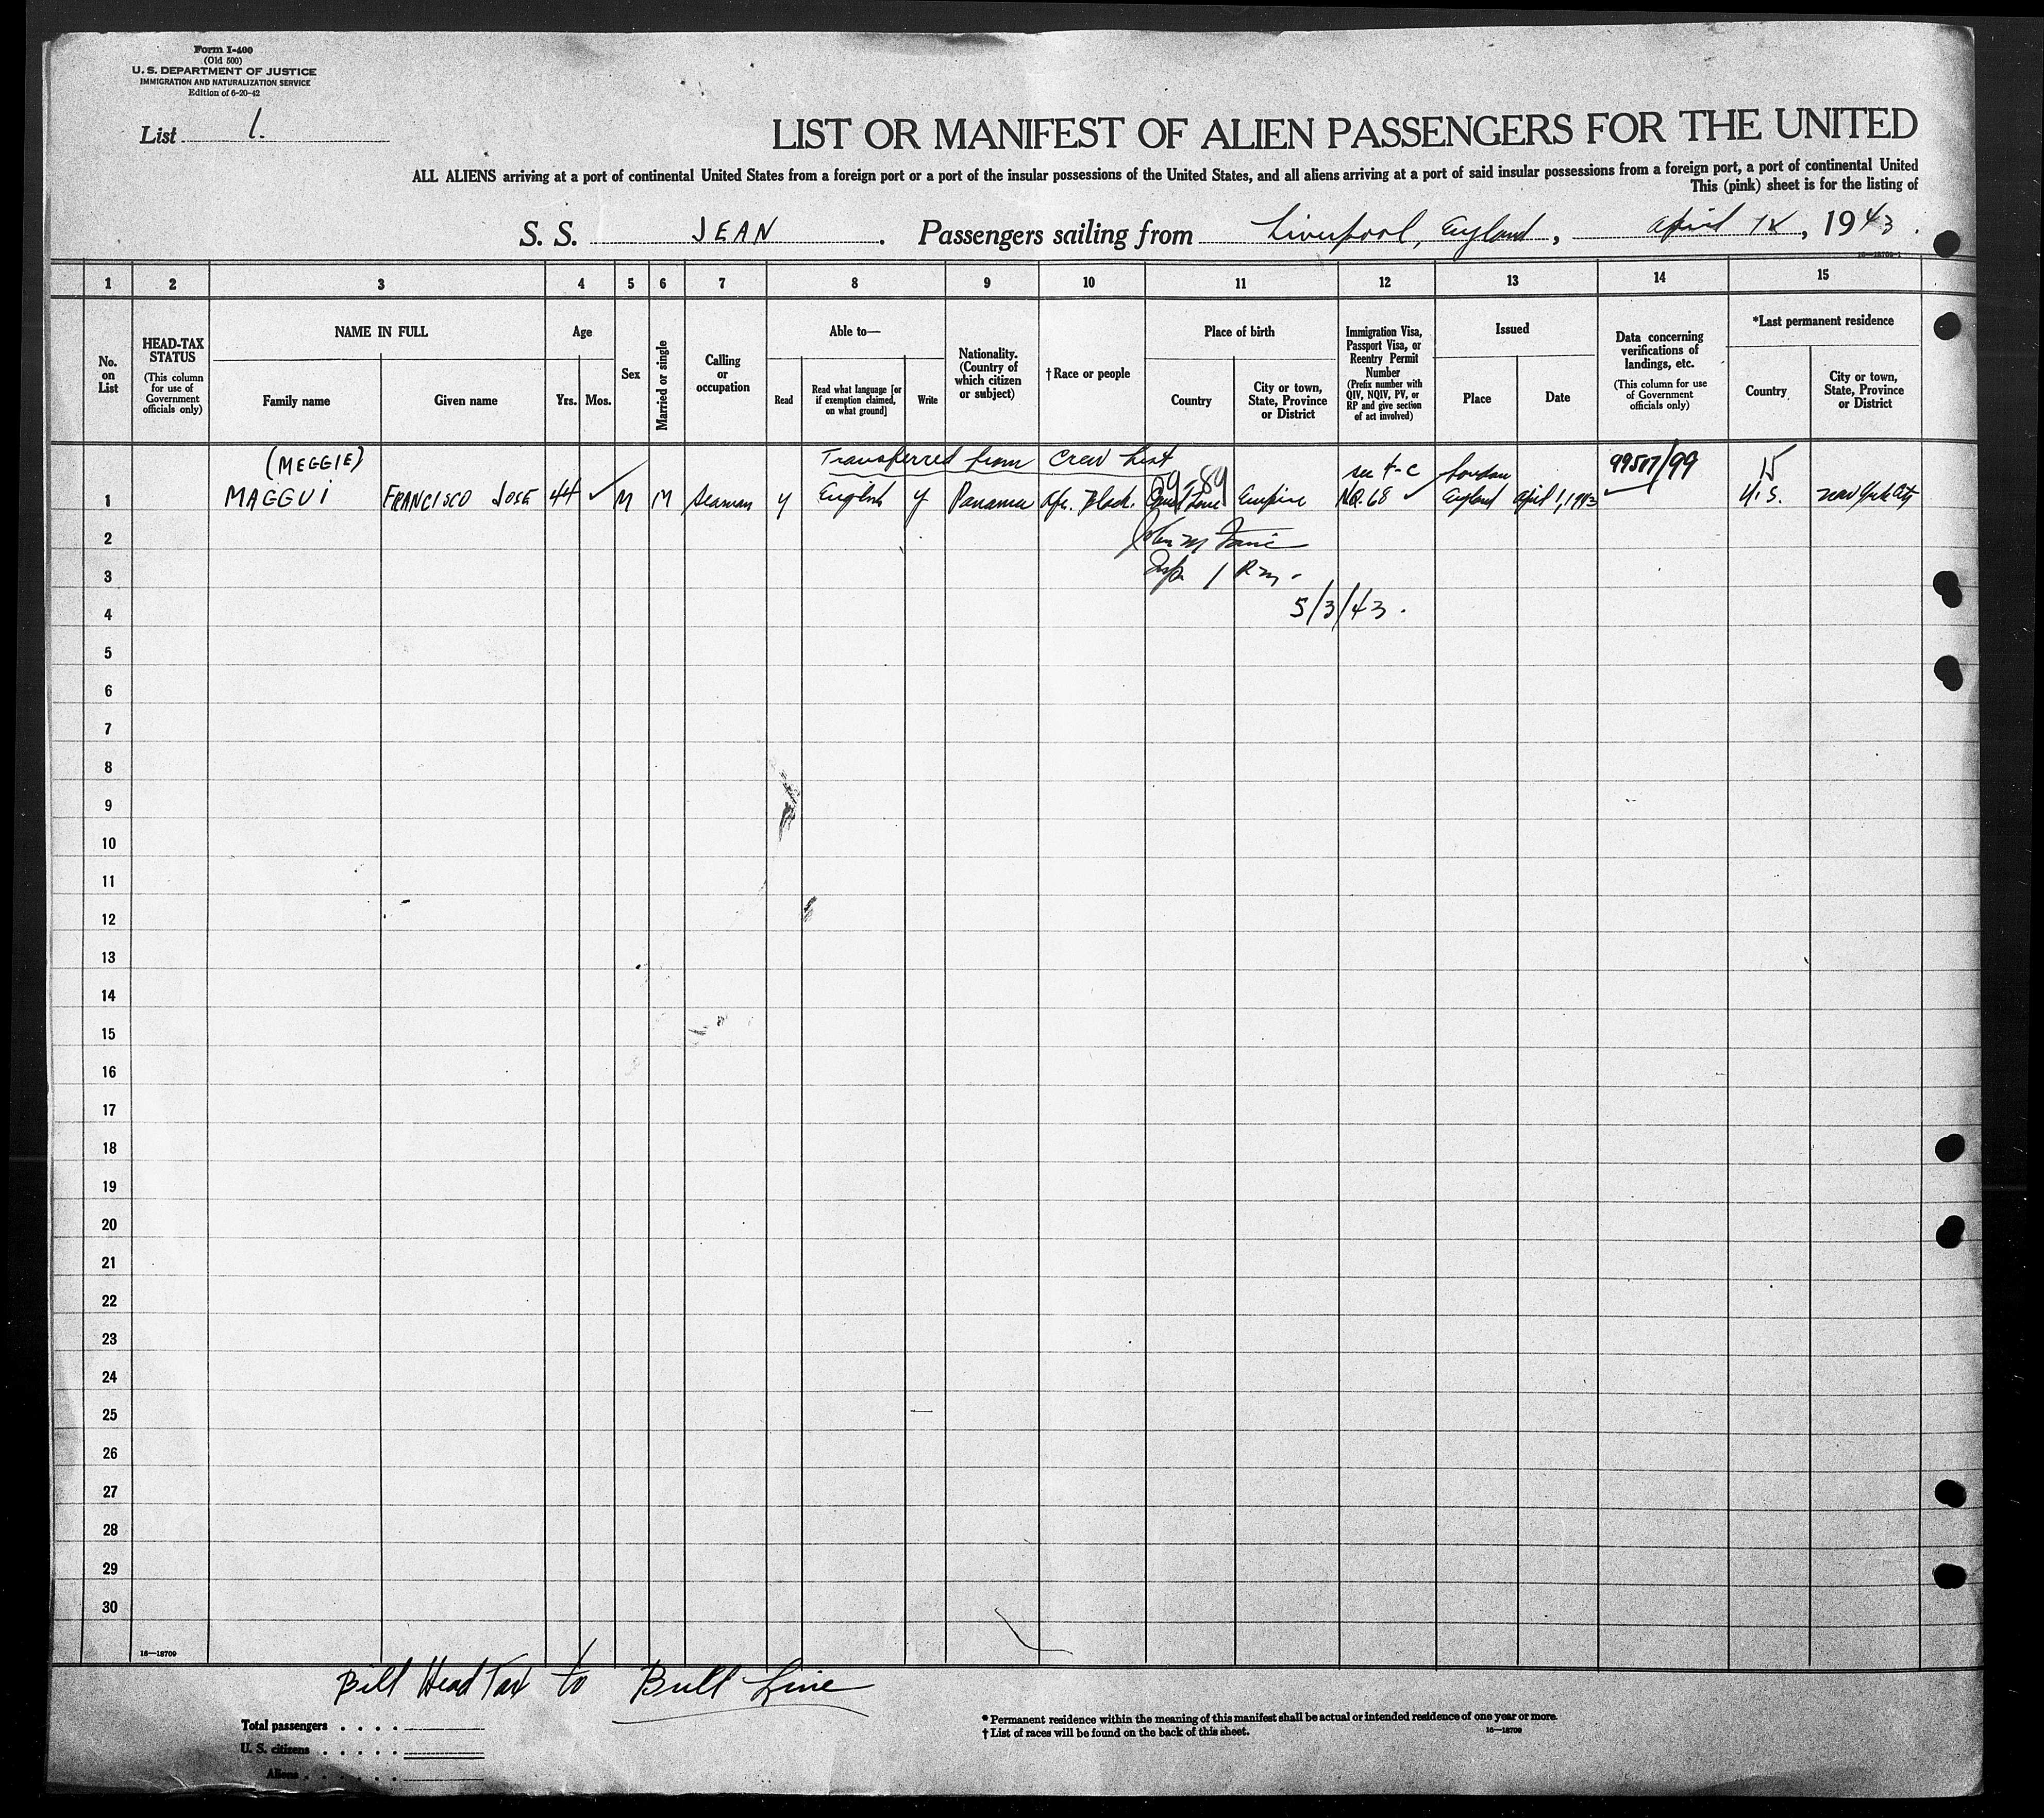 Form I-400
(Old 500)
U. S. DEPARTMENT OF JUSTICE
IMMIGRATION AND NATURALIZATION SERVICE
Edition of 6-20-42
List 1.
LIST OR MANIFEST OF ALIEN PASSENGERS FOR THE UNITED
ALL ALIENS arriving at a port of continental United States from a foreign port or a port of the insular possessions of the United States, and all aliens arriving at a port of said insular possessions from a foreign port, a port of continental United
This (pink) sheet is for the listing of
S. S. JEAN. Passengers sailing from Liverpool, England, April, 1943.
16—18709-1
1 2 3 4 5 6 7 8 9 10 11 12 13 14 15
No. on List
HEAD-TAX STATUS
(This column for use of Government officials only)
NAME IN FULL
Family name
Given name
Age
Yrs. Mos.
Sex
Married or single
Calling or occupation
Able to—
Read
Read what language [or if exemption claimed, on what ground]
Write
Nationality. (Country of which citizen or subject)
† Race or people
Place of birth
Country
City or town, State, Province or District
Immigration Visa, Passport Visa, or Reentry Permit Number
(Prefix number with QIV, NQIV, PV, or RP and give section of act involved)
Issued
Place
Date
Data concerning verifications of landings, etc.
(This column for use of Government officials only)
*Last permanent residence
Country
City or town, State, Province or District
(MEGGIE) Transferred from Crew List 99517/99 15
1 MAGGUI FRANCISCO JOSE 44 ✓ M M Seaman y English y Panama Afr. Black. Canal Zone Empire NQ.68 ✓ London England April 1, 1943 ✓ U.S. New York City
2
3
4 5/3/43.
5
6
7
8
9
10
11
12
13
14
15
16
17
18
19
20
21
22
23
24
25
26
27
28
29
30
16—18709
Bill Head Tax to Bull Line
Total passengers . . . .
U. S. citizens . . . . .
Aliens . . . . . .
* Permanent residence within the meaning of this manifest shall be actual or intended residence of one year or more.
† List of races will be found on the back of this sheet.
16—18709